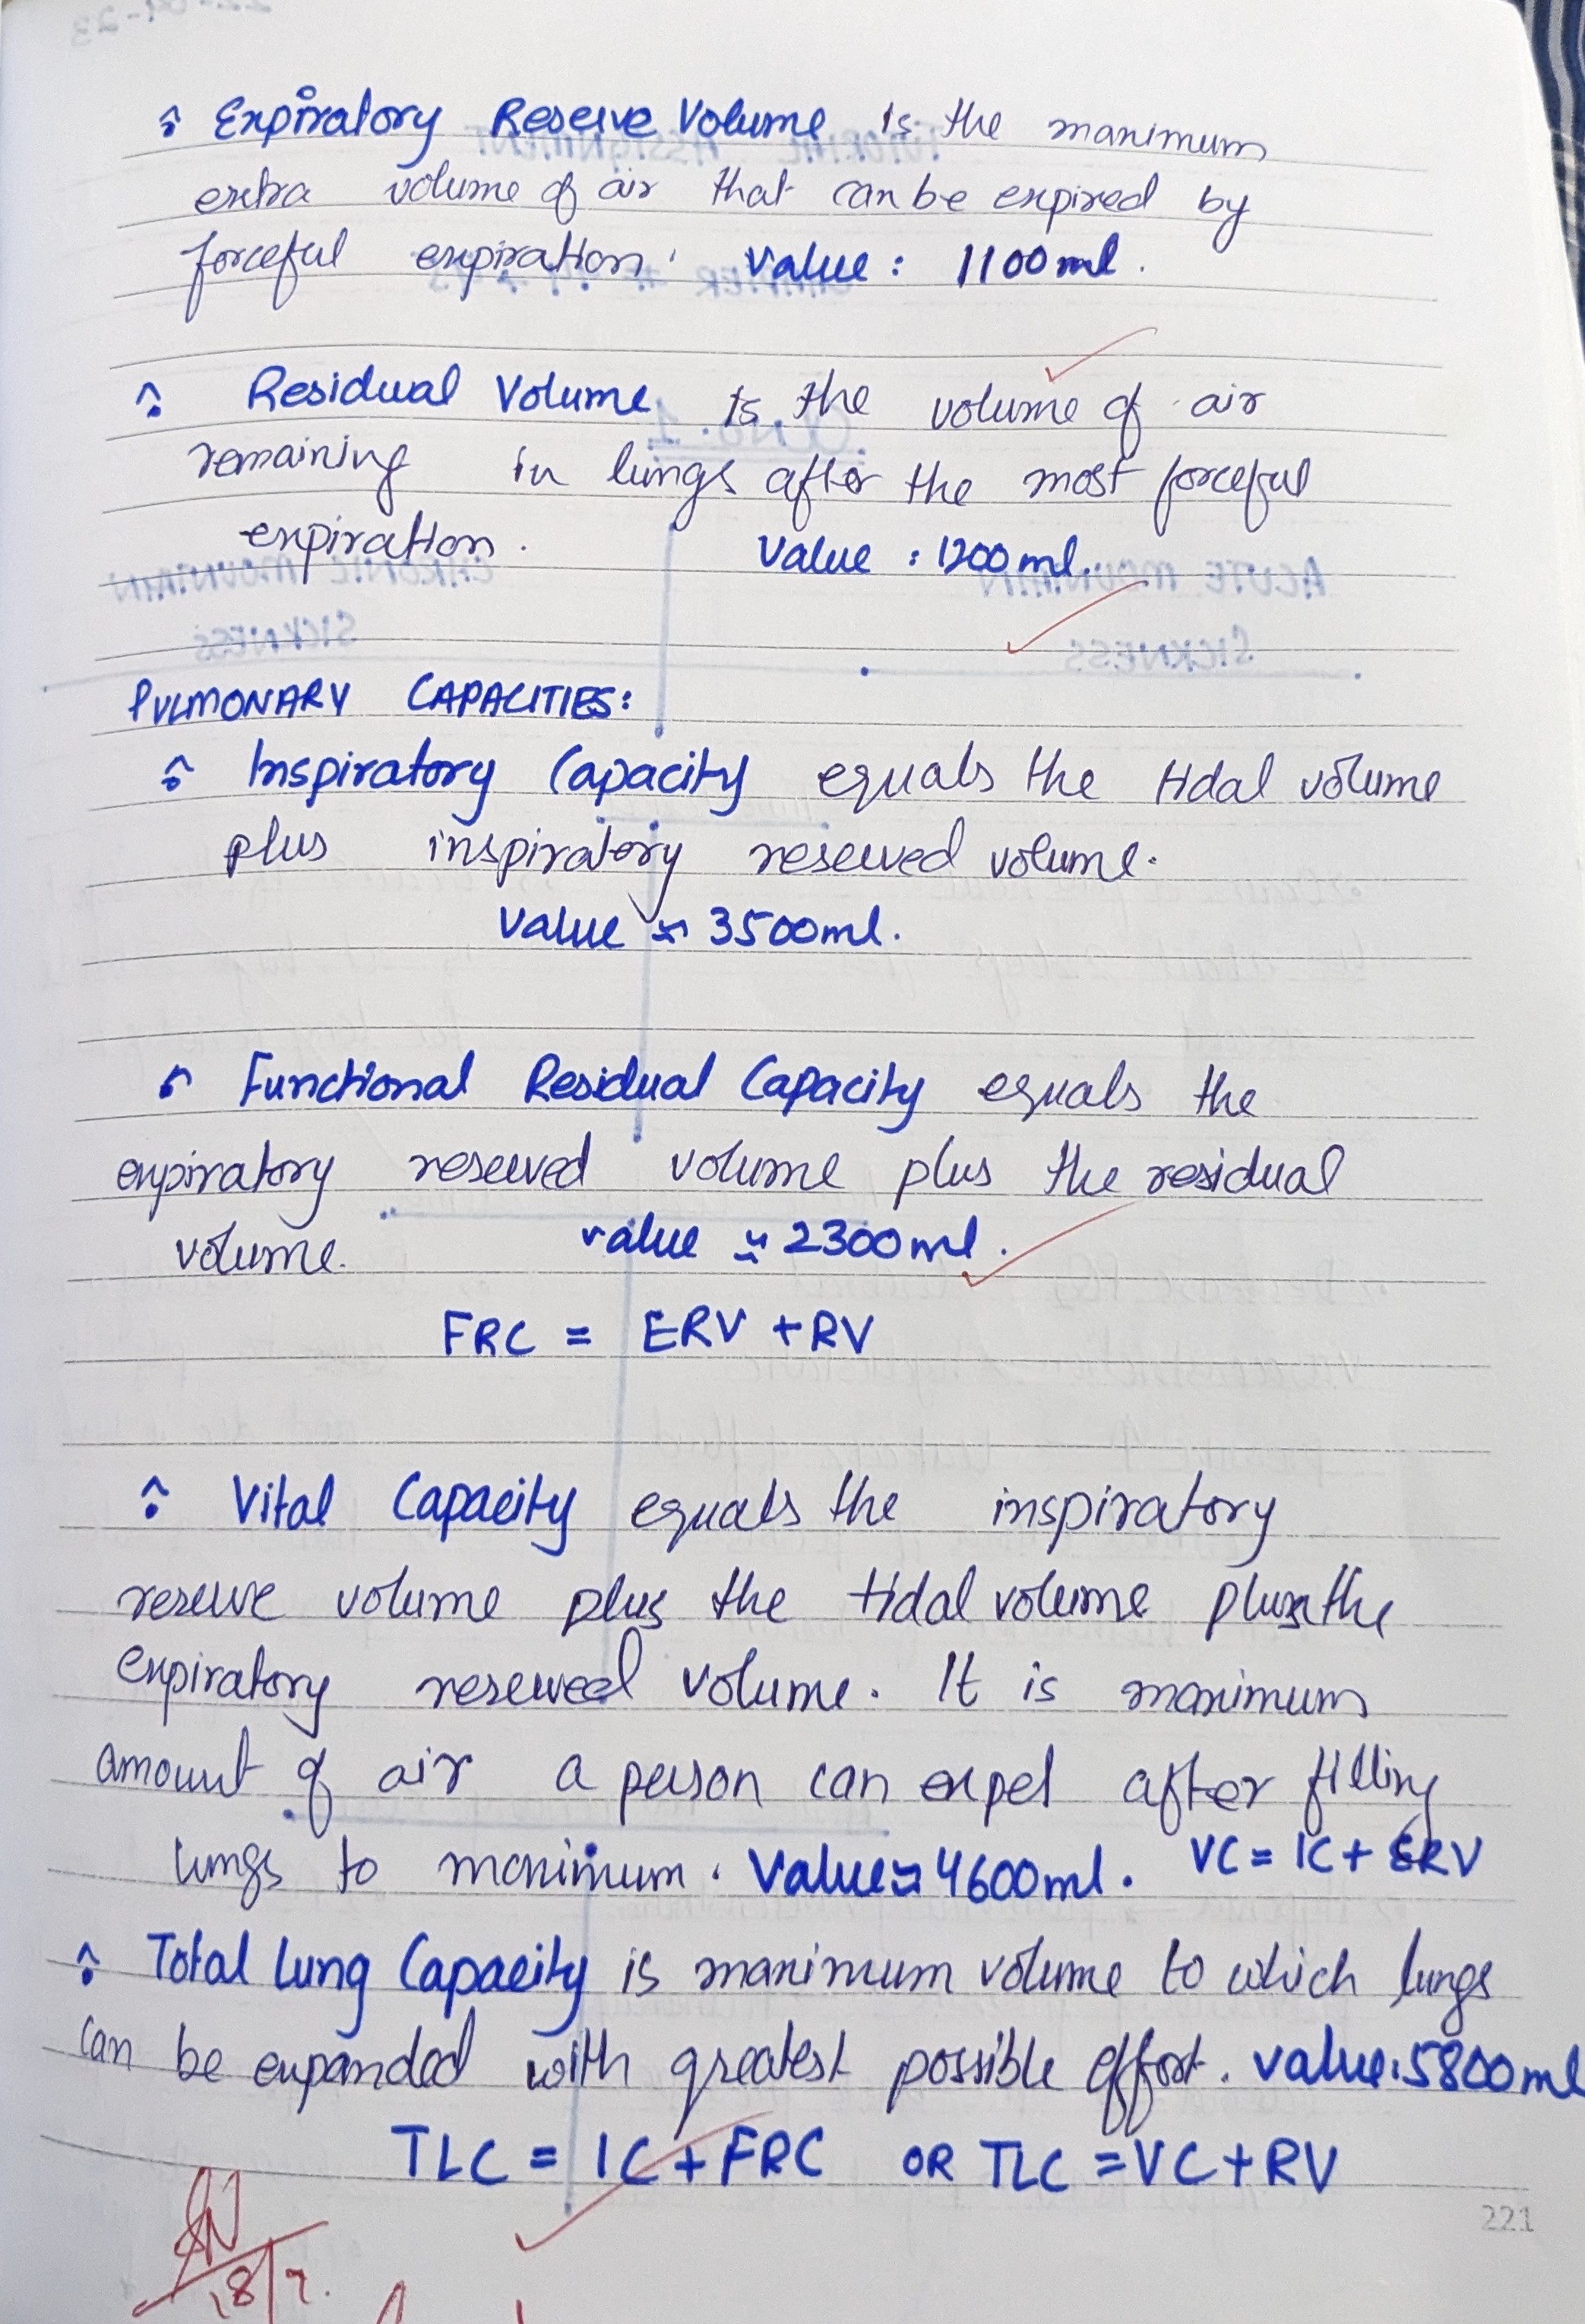 Expiratory Reserve Volume is the maximum
extra volume of air that can be expired by
forceful expiration. Value : 1100ml.
Residual Volume is the volume of air
remaining in lungs after the most forceful
expiration. Value : 1200ml.
PULMONARY CAPACITIES:
Inspiratory Capacity equals the tidal volume
plus inspiratory reserved volume.
Value ≈ 3500ml.
Functional Residual Capacity equals the
expiratory reserved volume plus the residual
volume. value ≃ 2300ml.
FRC = ERV + RV
Vital Capacity equals the inspiratory
reserve volume plus the tidal volume plus the
expiratory reserved volume. It is maximum
amount of air a person can expel after filling
lungs to maximum. Value ≈ 4600ml. VC = IC + ERV
Total Lung Capacity is maximum volume to which lungs
can be expanded with greatest possible effort. value: 5800ml
TLC = IC + FRC OR TLC = VC + RV
221
18/7.